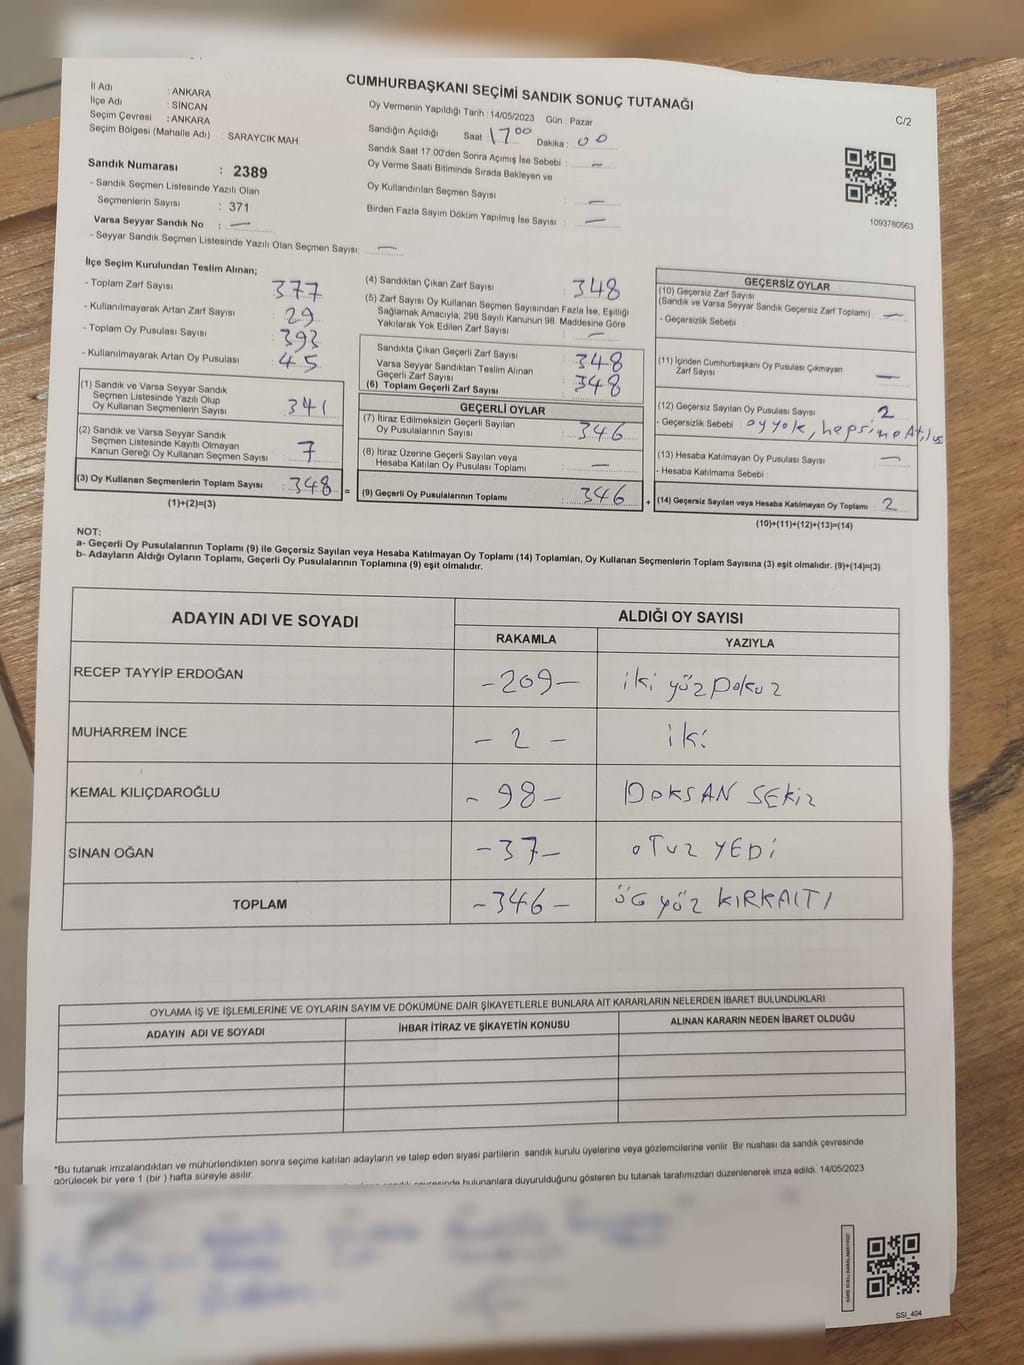 CUMHURBAŞKANI SEÇİMİ SANDIK SONUÇ TUTANAĞI
C/2
İl Adı : ANKARA
İlçe Adı : SİNCAN
Seçim Çevresi : ANKARA
Seçim Bölgesi (Mahalle Adı) : SARAYCIK MAH.
Sandık Numarası : 2389
- Sandık Seçmen Listesinde Yazılı Olan
Seçmenlerin Sayısı : 371
Varsa Seyyar Sandık No : —
- Seyyar Sandık Seçmen Listesinde Yazılı Olan Seçmen Sayısı: —
Oy Vermenin Yapıldığı Tarih : 14/05/2023 Gün : Pazar
Sandığın Açıldığı Saat : 17 00 Dakika : 00
Sandık Saat 17:00'den Sonra Açımış İse Sebebi : —
Oy Verme Saati Bitiminde Sırada Bekleyen ve
Oy Kullandırılan Seçmen Sayısı : —
Birden Fazla Sayım Döküm Yapılmış İse Sayısı : —
1093780563
İlçe Seçim Kurulundan Teslim Alınan;
- Toplam Zarf Sayısı : 377
- Kullanılmayarak Artan Zarf Sayısı : 29
- Toplam Oy Pusulası Sayısı : 393
- Kullanılmayarak Artan Oy Pusulası : 45
(1) Sandık ve Varsa Seyyar Sandık
Seçmen Listesinde Yazılı Olup
Oy Kullanan Seçmenlerin Sayısı : 341
(2) Sandık ve Varsa Seyyar Sandık
Seçmen Listesinde Kayıtlı Olmayan
Kanun Gereği Oy Kullanan Seçmen Sayısı : 7
(3) Oy Kullanan Seçmenlerin Toplam Sayısı : 348 =
(1)+(2)=(3)
(4) Sandıktan Çıkan Zarf Sayısı : 348
(5) Zarf Sayısı Oy Kullanan Seçmen Sayısından Fazla İse, Eşitliği
Sağlamak Amacıyla, 298 Sayılı Kanunun 98. Maddesine Göre
Yakılarak Yok Edilen Zarf Sayısı : —
Sandıkta Çıkan Geçerli Zarf Sayısı : 348
Varsa Seyyar Sandıktan Teslim Alınan
Geçerli Zarf Sayısı : 348
(6) Toplam Geçerli Zarf Sayısı
GEÇERLİ OYLAR
(7) İtiraz Edilmeksizin Geçerli Sayılan
Oy Pusulalarının Sayısı : 346
(8) İtiraz Üzerine Geçerli Sayılan veya
Hesaba Katılan Oy Pusulası Toplamı : —
(9) Geçerli Oy Pusulalarının Toplamı : 346 +
GEÇERSİZ OYLAR
(10) Geçersiz Zarf Sayısı
(Sandık ve Varsa Seyyar Sandık Geçersiz Zarf Toplamı) : —
- Geçersizlik Sebebi
(11) İçinden Cumhurbaşkanı Oy Pusulası Çıkmayan
Zarf Sayısı : —
(12) Geçersiz Sayılan Oy Pusulası Sayısı : 2
- Geçersizlik Sebebi : oy yok, hepsine Atılus
(13) Hesaba Katılmayan Oy Pusulası Sayısı : —
- Hesaba Katılmama Sebebi :
(14) Geçersiz Sayılan veya Hesaba Katılmayan Oy Toplamı : 2
(10)+(11)+(12)+(13)=(14)
NOT:
a- Geçerli Oy Pusulalarının Toplamı (9) ile Geçersiz Sayılan veya Hesaba Katılmayan Oy Toplamı (14) Toplamları, Oy Kullanan Seçmenlerin Toplam Sayısına (3) eşit olmalıdır. (9)+(14)=(3)
b- Adayların Aldığı Oyların Toplamı, Geçerli Oy Pusulalarının Toplamına (9) eşit olmalıdır.
ADAYIN ADI VE SOYADI ALDIĞI OY SAYISI
RAKAMLA YAZIYLA
RECEP TAYYİP ERDOĞAN -209- iki yüz Dokuz
MUHARREM İNCE - 2 - iki
KEMAL KILIÇDAROĞLU - 98 - DOKSAN SEKİZ
SİNAN OĞAN -37- OTUZ YEDİ
TOPLAM -346- ÜÇ yüz KIRKALTI
OYLAMA İŞ VE İŞLEMLERİNE VE OYLARIN SAYIM VE DÖKÜMÜNE DAİR ŞİKAYETLERLE BUNLARA AİT KARARLARIN NELERDEN İBARET BULUNDUKLARI
ADAYIN ADI VE SOYADI İHBAR İTİRAZ VE ŞİKAYETİN KONUSU ALINAN KARARIN NEDEN İBARET OLDUĞU
*Bu tutanak imzalandıktan ve mühürlendikten sonra seçime katılan adayların ve talep eden siyasi partilerin sandık kurulu üyelerine veya gözlemcilerine verilir. Bir nüshası da sandık çevresinde
görülecek bir yere 1 (bir) hafta süreyle asılır.
bulunanlara duyurulduğunu gösteren bu tutanak tarafımızdan düzenlenerek imza edildi. 14/05/2023
KARE KODU KARALAMAYINIZ!
SSI_404